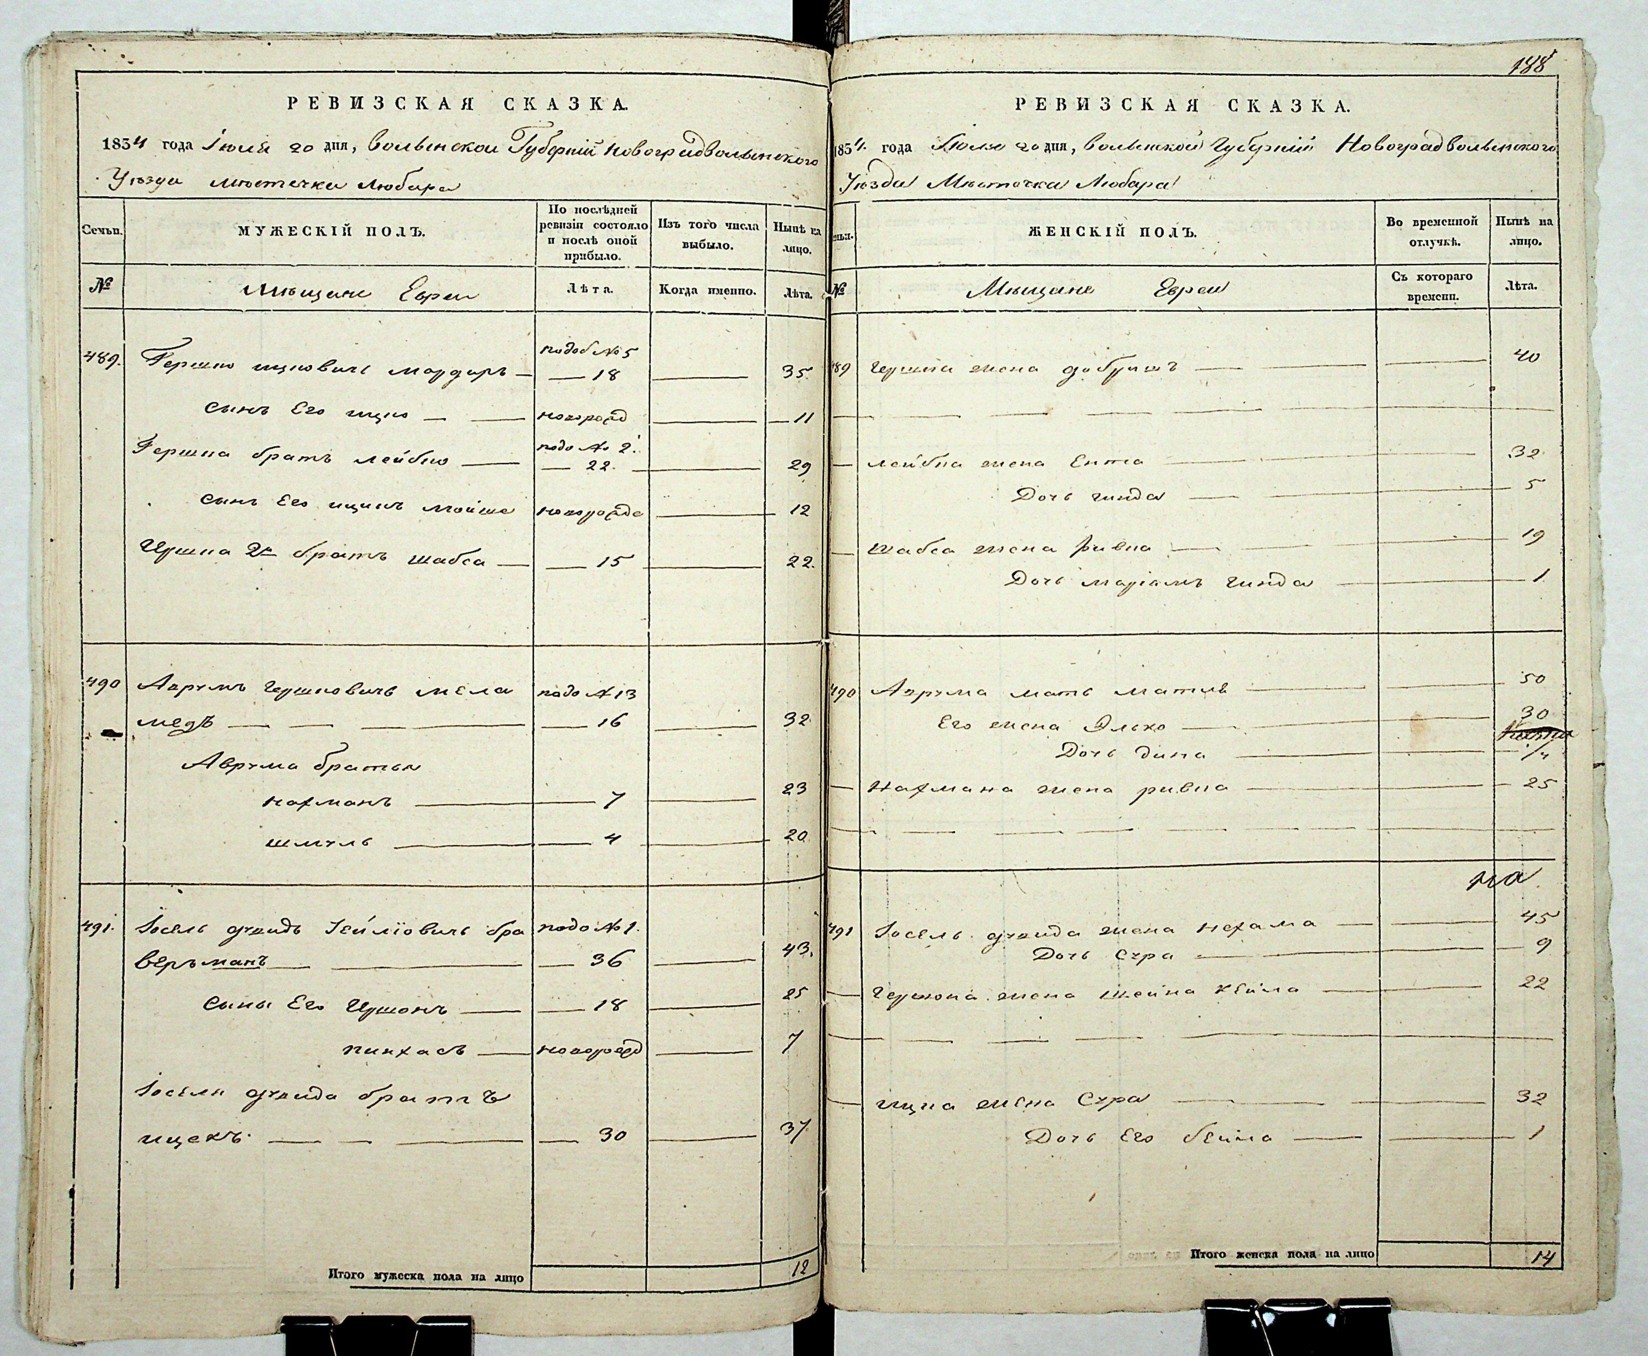 РЕВИЗСКАЯ СКАЗКА.
1854 года Іюля 20 дня, Волынской Губерніи Новоградволынского
Уѣзда мѣстечка Любара
Семьи.
МУЖЕСКІЙ ПОЛЪ.
По послѣдней ревизіи состояло и послѣ оной прибыло.
Изъ того числа выбыло.
Нынѣ на лицо.
№
Мѣщане Евреи
Лѣта.
Когда именно.
Лѣта.
489. Гершко ицковичъ
подоб №5
18 35
сынъ Его ицко новорожд 11
Гершка братъ лейбко
подо № 2.
22 29
сынъ Его ицикъ мойше новорожде 12
Гершка 2й братъ шабса 15 22
490 Аврумъ Гершковичъ мела подо №13
медъ 16 32
Аврума братья
нахманъ 7 23
шмуль 4 20
491. Іосель дувидъ бра подо №1.
верманъ 36 43.
сыны Его Гершонъ 18 25
пинхасъ новорожд 7
Іоселя дувида братъ
ицекъ 30 37
Итого мужеска пола на лицо 12
188
РЕВИЗСКАЯ СКАЗКА.
1854. года Іюля 20 дня, Волынской Губерніи Новоградволынского
Уѣзда Мѣстечка Любара
ЖЕНСКІЙ ПОЛЪ.
Во временной отлучкѣ.
Нынѣ на лицо.
№
Мѣщане Евреи
Съ котораго времени.
Лѣта.
489 Гершка жена добришъ 40
лейбка жена Ента 32
Дочь гинда 5
шабса жена ривка 19
Дочь маріамъ гинда 1
490 Аврума мать матля 50
Его жена Элько 30
Дочь дина 1/4
нахмана жена ривка 25
на
491 Іосель дувида жена нехама 45
Дочь Сура 9
Гершона жена шейна хейма 22
ицка жена Сура 32
Дочь Его бейла 1
Итого женска пола на лицо 14